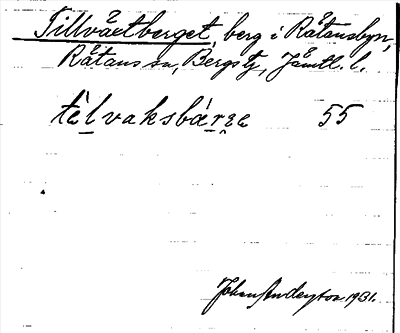 Tillväxtberget, berg i Råtansbyn,
Råtans sn, Bergs tg, Jämtl. l.
tèlvaksbárge 55
Johan Anderzon 1931.